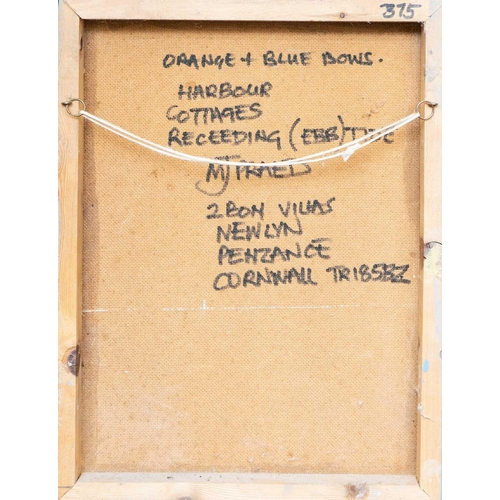 375
ORANGE + BLUE BOWS.
HARBOUR
COTTAGES
RECEEDING (EBB) TIDE
MJ PRAED
2 BON VILLAS
NEWLYN
PENZANCE
CORNWALL TR185EZ